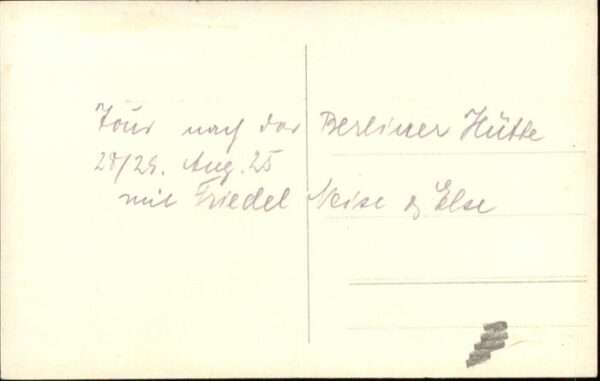 Tour nach der Berliner Hütte
28/29. Aug. 25
mit Friedel Neise & Else